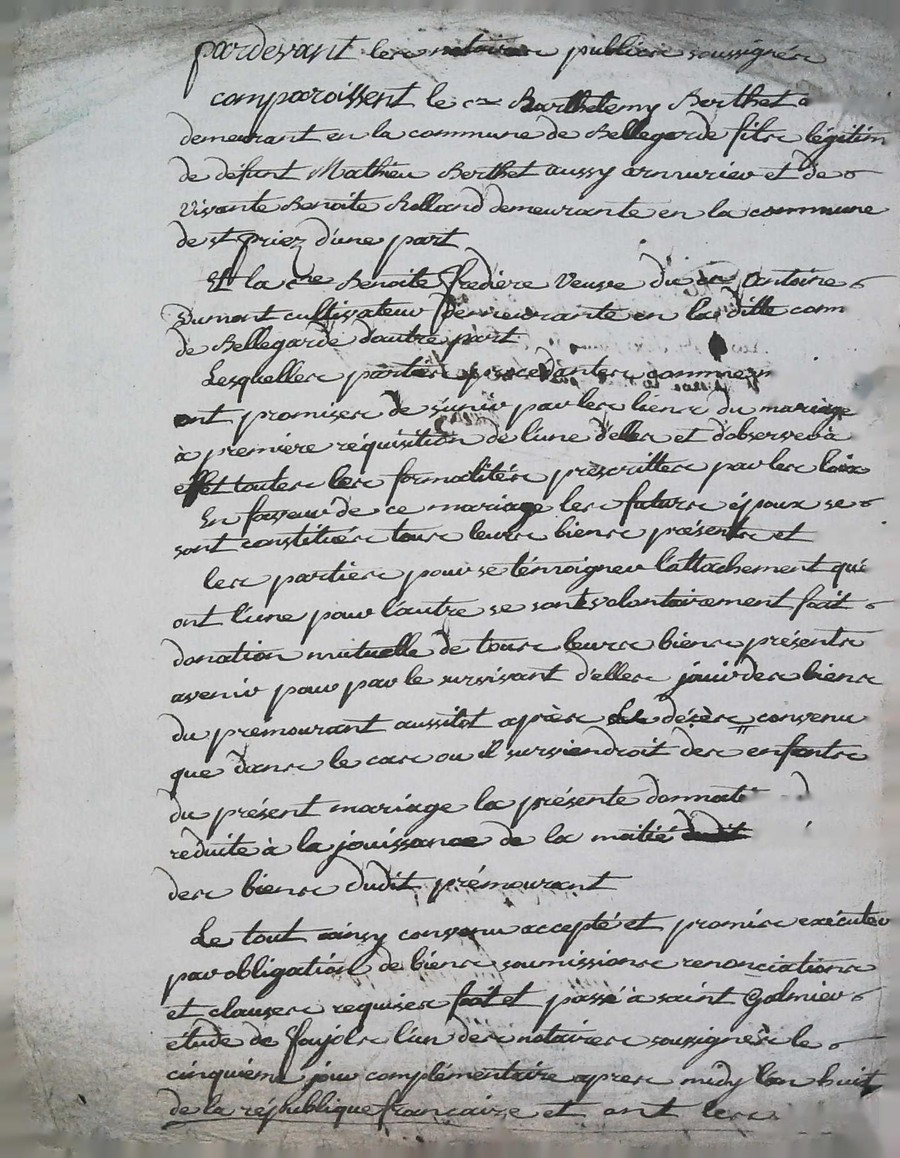 pardevant les notaires publics soussignés
comparoissent le cen Barthelemy Berthet
demeurant en la commune de Bellegarde fils légitim
de défunt Mathieu Berthet aussy armurier et de
vivante Benoite Rolland demeurante en la commune
de st priez d'une part
Et la cne Benoite Fredière veuve du cn Antoine
Dumont cultivateur demeurante en la ditte com
de Bellegarde d'autre part
Lesquelles parties procedantes comme
ont promises de s'unir par les liens du mariage
à première réquisition de l'une d'elles et d'observer à
effet toutes les formalités prescrittes par les loix
En faveur de ce mariage les futurs époux se
sont constitués tous leurs biens présents et
les parties pour se témoigner l'attachement que
ont l'une pour l'autre se sont volontairement fait
donation mutuelle de tous leurs biens présents
avenir pour par le survivant d'elles jouir des biens
du premourant aussitot après décès convenu
que dans le cas ou il surviendroit des enfants
du présent mariage la présente donnati
reduite à la jouissance de la moitié dudit
des biens dudit prémourant
Le tout ainsy convenu accepté et promis exécuter
par obligation de biens soumissions renonciations
et clauses requises fait et passé à saint Galmier
étude de Faujols l'un des notaires soussignés le
cinquieme jour complémentaire apres midy l'an huit
de la république francaise et ont les